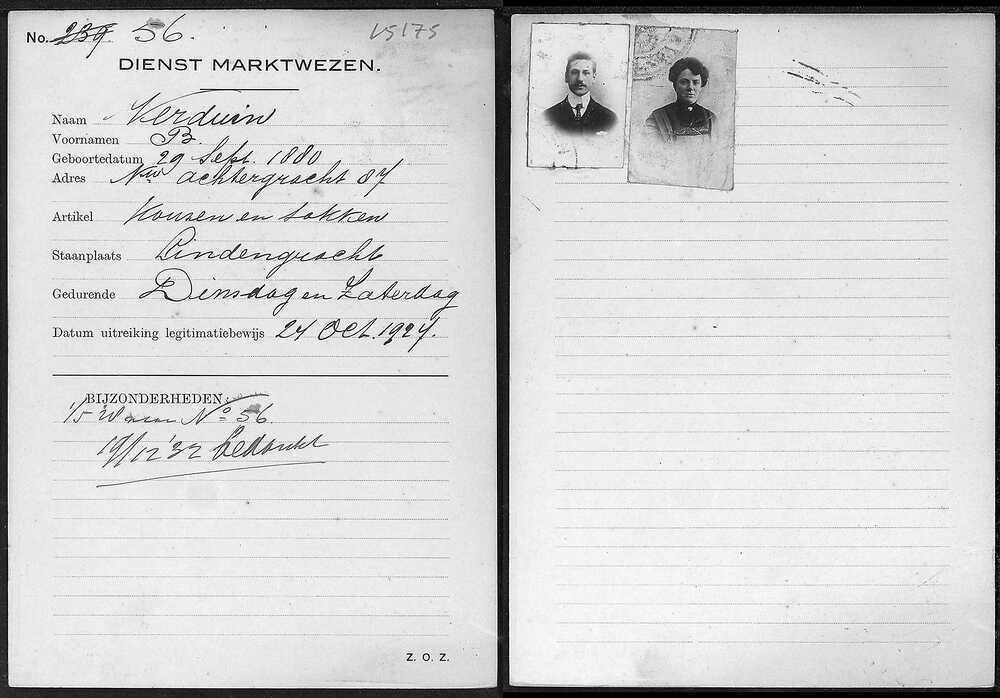 No. 239. 56.
15175
DIENST MARKTWEZEN.
Naam Verduin
Voornamen B.
Geboortedatum 29 Sept. 1880
Adres Nw achtergracht 87
Artikel Kousen en Sokken
Staanplaats Lindengracht
Gedurende Dinsdag en Zaterdag
Datum uitreiking legitimatiebewijs 24 Oct. 1924.
BIJZONDERHEDEN:
1/5 '28 No 56.
19/12 '32 bedankt
Z. O. Z.